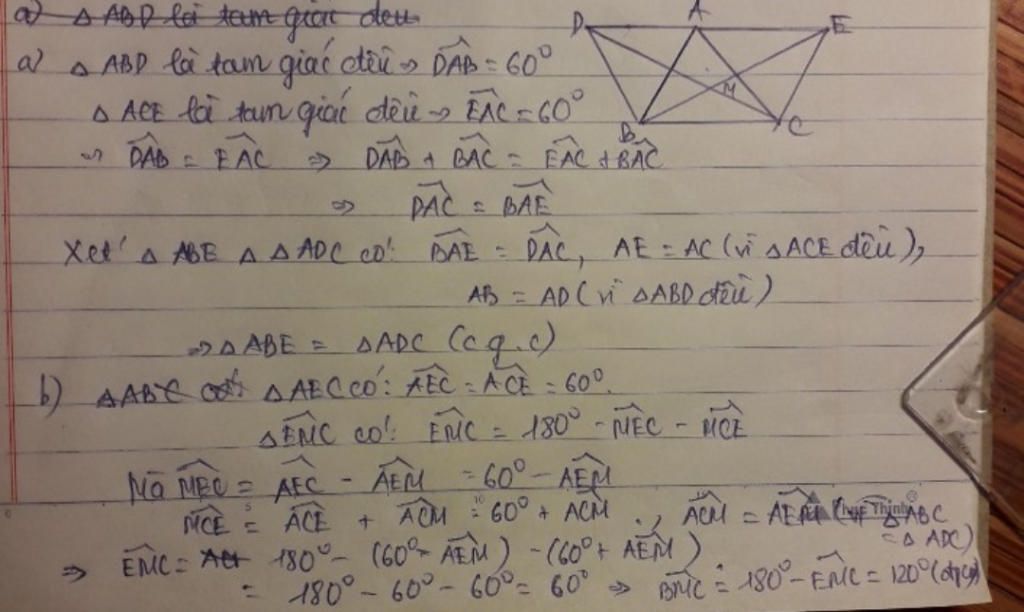 a) △ ABD là tam giác đều
D A E
a) △ ABD là tam giác đều → DAB = 60°
M
△ ACE là tam giác đều → EAC = 60°
B C
→ DAB = EAC ⇒ DAB + BAC = EAC + BAC
⇒ DAC = BAE
Xét △ ABE △ △ ADC có: BAE = DAC, AE = AC (vì △ACE đều),
AB = AD (vì △ABD đều)
⇒ △ ABE = △ADC (c.g.c)
b) △ABC có △AEC có: AEC = ACE = 60°.
△EMC có: EMC = 180° - MEC - MCE
Mà MEC = AEC - AEM = 60° - AEM
MCE = ACE + ACM = 60° + ACM ., ACM = AEM (vì △ABC
= △ ADC)
⇒ EMC = 180° - (60° - AEM) - (60° + AEM)
= 180° - 60° - 60° = 60° ⇒ BMC = 180° - EMC = 120° (đpcm)